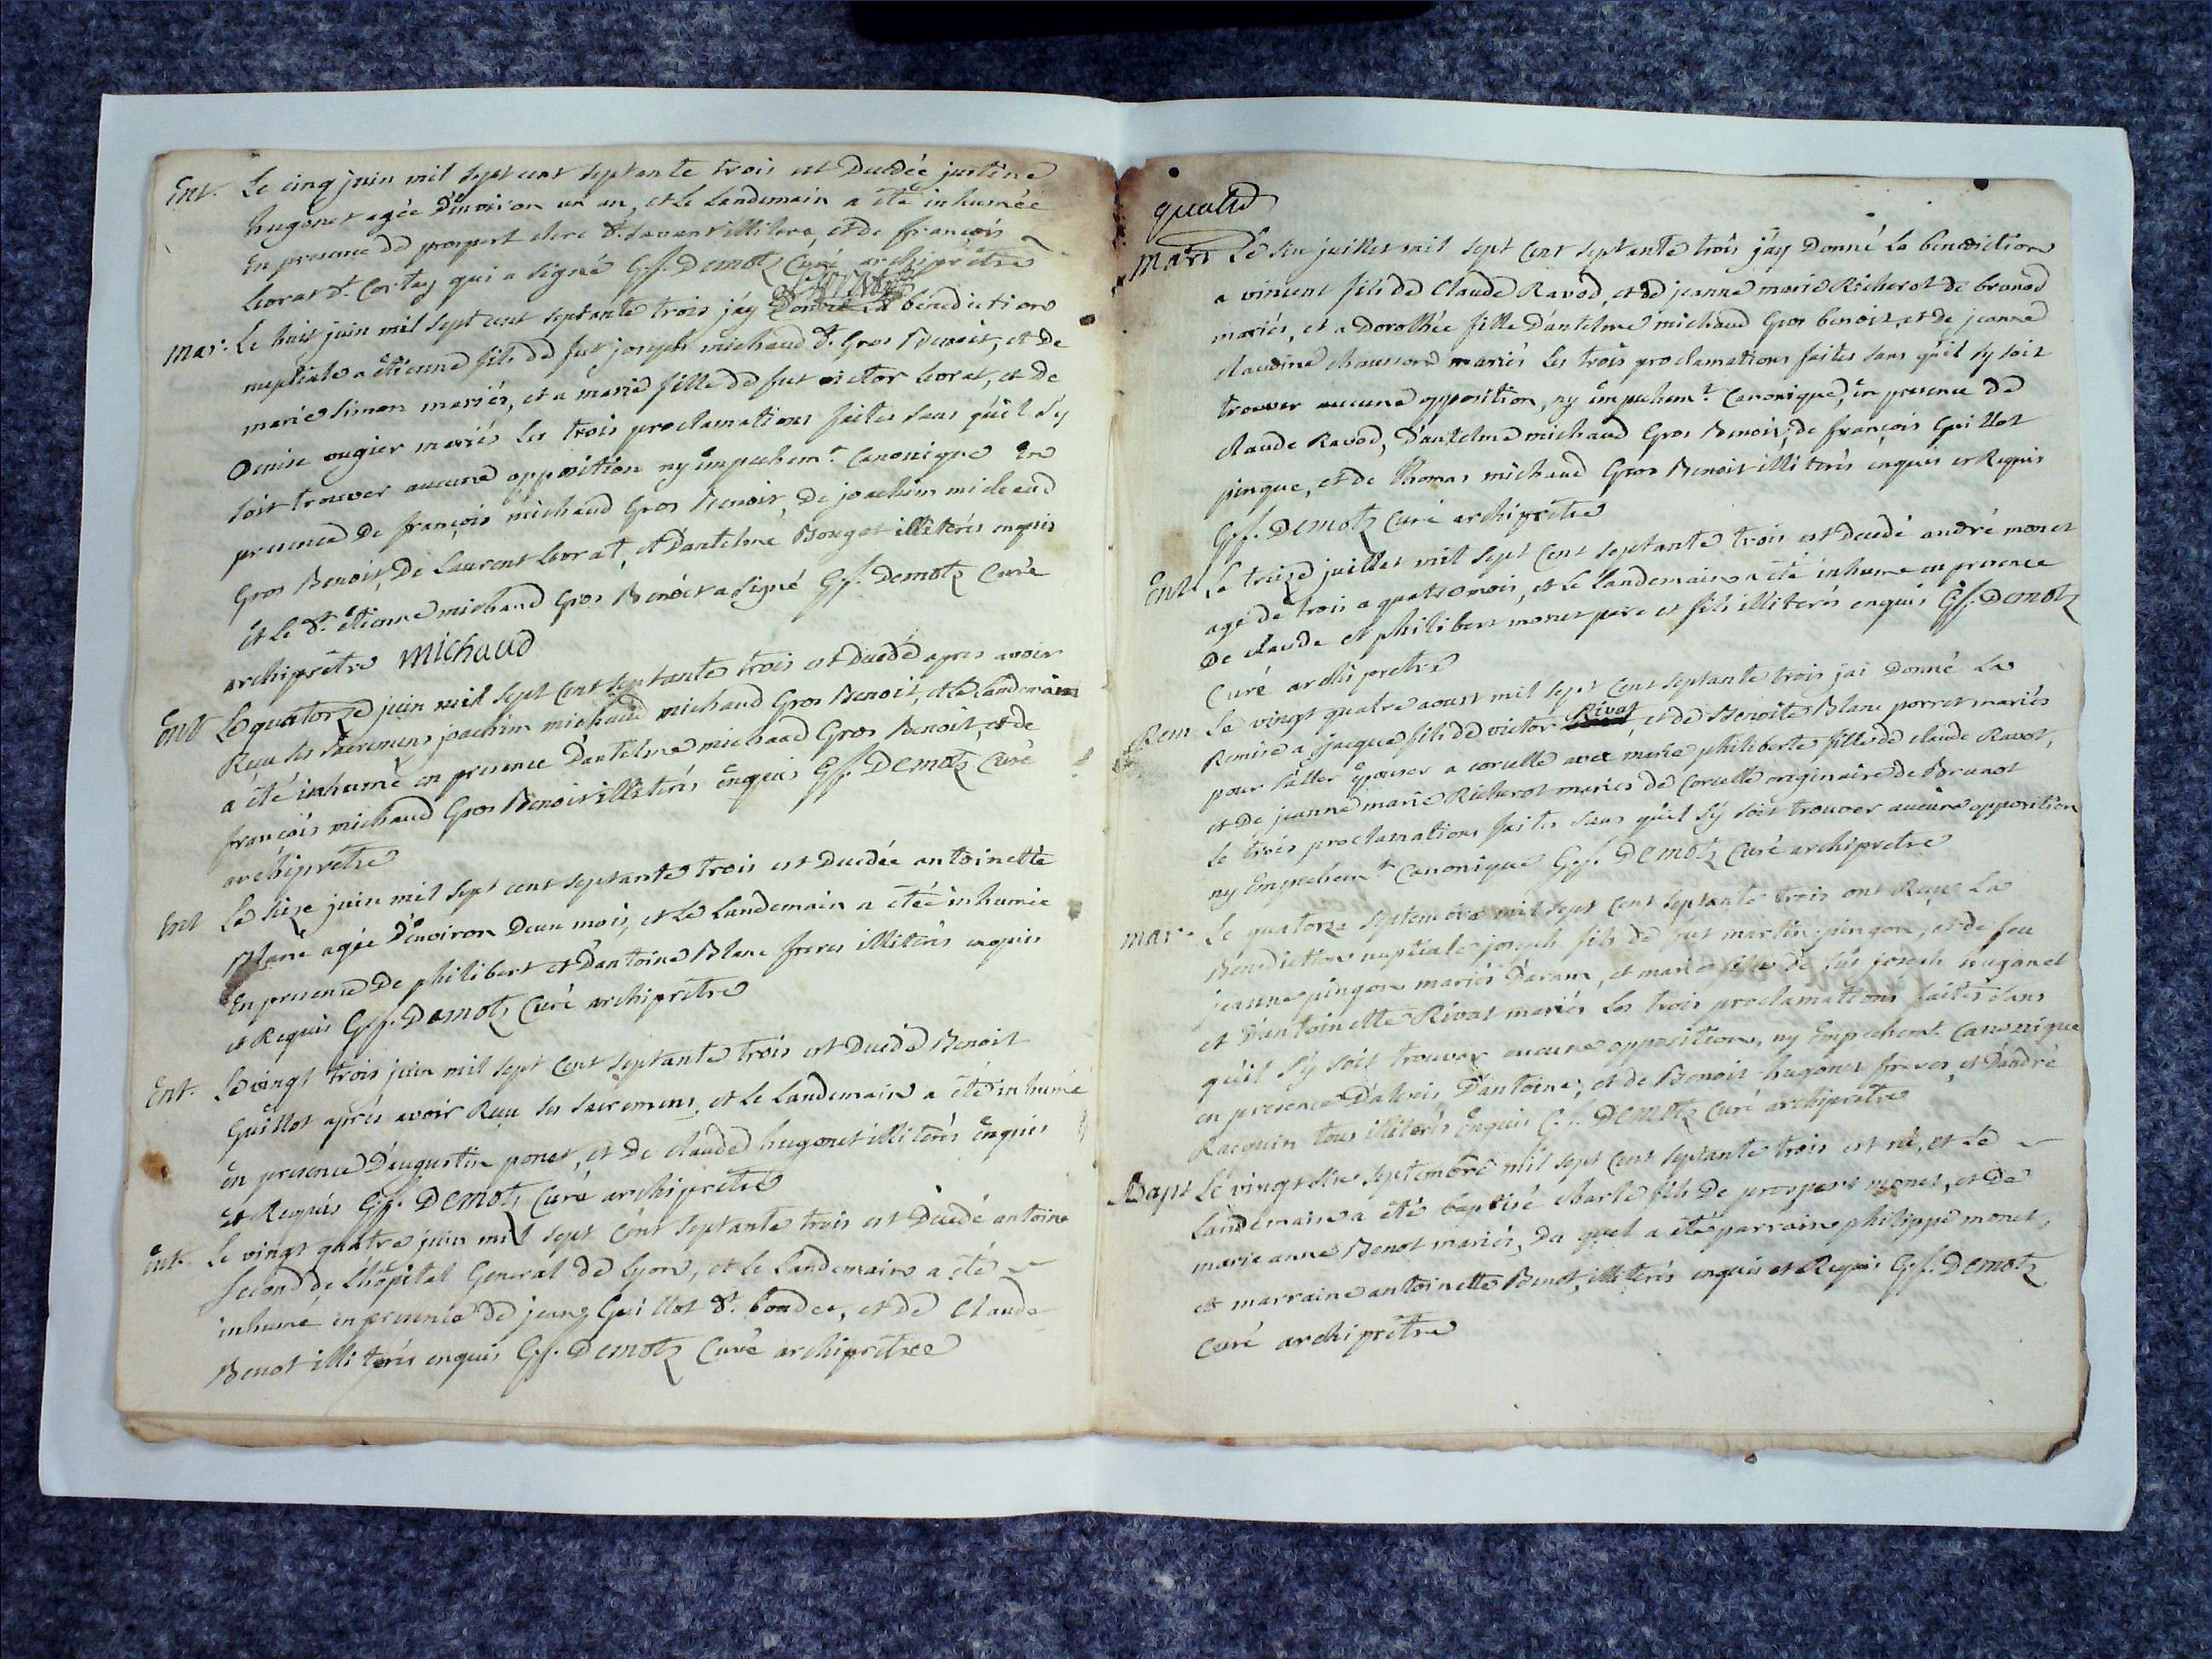 Ent. Le cinq juin mil sept cent septante trois est decedée justine
hugonet agée d'environ un an, et le landemain a été inhumée
en presence de prospert clerc d. savant illitere, et de françois
Levrat d. Cortay qui a signé Gf. Demotz Curé archiprêtre
Mar. Le huit juin mil sept cent septante trois j'ay Donné La bénédiction
nuptiale a étienne fils de fut joseph michaud d. Gros Benoit, et de
marie Simon mariés, et a marie fille de fut victor Levrat, et de
Denise ougier mariés les trois proclamations faites sans qu'il s'y
soit trouver aucune opposition ny empechemt. Canonique en
presence de françois michaud Gros Benoit, de joachim michaud
Gros Benoit, De Laurent Levrat, et d'antelme Bouget illiterés enquis
et le d. étienne michaud Gros Benoit a signé Gf. Demotz Curé
archiprêtre michaud
Ent Le quatorze juin mil sept Cent septante trois est decedé apres avoir
Reçu les sacremens joachim michaud michaud Gros Benoit, et le landemain
a été inhumé en presence d'antelme michaud Gros Benoit, et de
françois michaud Gros Benoit illiterés enquis Gf. Demotz Curé
archiprêtre
Ent Le seize juin mil sept cent septante trois est decedée antoinette
Blanc agée d'environ deux mois, et le landemain a étée inhumée
En presence De philibert et d'antoine Blanc freres illiterés enquis
et Requis Gf. Demotz Curé archiprêtre
Ent. Le vingt trois juin mil sept Cent septante trois est decedé Benoit
Guillot après avoir Reçu les sacremens, et le landemain a été inhumé
en presence d'augustin ponet, et de claude hugonet illiterés enquis
et Requis Gf. Demotz Curé archiprêtre
Ent. Le vingt quatre juin mil sept Cent septante trois est decedé antoine
second de L'hôpital General de Lyon, et le landemain a été
inhumé en presence de jean Guillot d. bonder, et de Claude
Benot illiterés enquis Gf. Demotz Curé archiprêtre
quatre
Mari Le six juillet mil sept Cent septante trois j'ay Donné la benediction
a vincent fils de Claude Ravod, et de jeanne marie Richerot de brunod
mariés, et a Dorothée fille d'antelme michaud Gros benoit, et de jeanne
claudine chaussond mariés les trois proclamations faites sans qu'il s'y soit
trouver aucune opposition, ny empechemt. Canonique, en presence de
claude Ravod, d'antelme michaud Gros Benoit, de françois Guillot
pinque, et de Thomas michaud Gros Benoit illiterés enquis et Requis
Gf. Demotz Curé archiprêtre
Ent. Le treize juillet mil sept Cent septante trois est decedé andré monet
agé de trois a quatre mois, et le landemain a été inhumé en presence
De claude et philibert monet pere et fils illiterés enquis Gf. Demotz
Curé archiprêtre
Rem Le vingt quatre aoust mil sept Cent septante trois jai Donné la
Remise a jacque fils de victor Rivat, et de Benoite Blanc porret mariés
pour s'aller épouser a corcelle avec marie philiberte fille de claude Ravot,
et De jeanne marie Richerot mariés de Corcelle originaire de Brunot
le trois proclamations faites sans qu'il s'y soit trouver aucune opposition
ny Empechemt. Canonique Gf. Demotz Curé archiprêtre
mar. Le quatorze septembre mil sept Cent septante trois ont Reçu La
Bénédiction nuptiale joseph fils de fut martin pingon, et de feu
jeanne pingon mariés d'aranc, et marie fille de fut joseph hugonet
et d'antoinette Rivat mariés les trois proclamations faites sans
qu'il s'y soit trouver aucune opposition, ny Empechemt. Canonique
en presence d'alexis d'antoine, et de Benoit hugonet freres, et d'andré
Racouin tous illiterés enquis Gf. Demotz Curé archiprêtre
Bapt Le vingt six septembre mil sept Cent septante trois est né, et le
landemain a été baptisé charle fils De prospert monet, et de
marie anne Benot mariés, du quel a été parrain philippe monet,
et marraine antoinette Benot, illiterés enquis et Requis Gf. Demotz
Curé archiprêtre